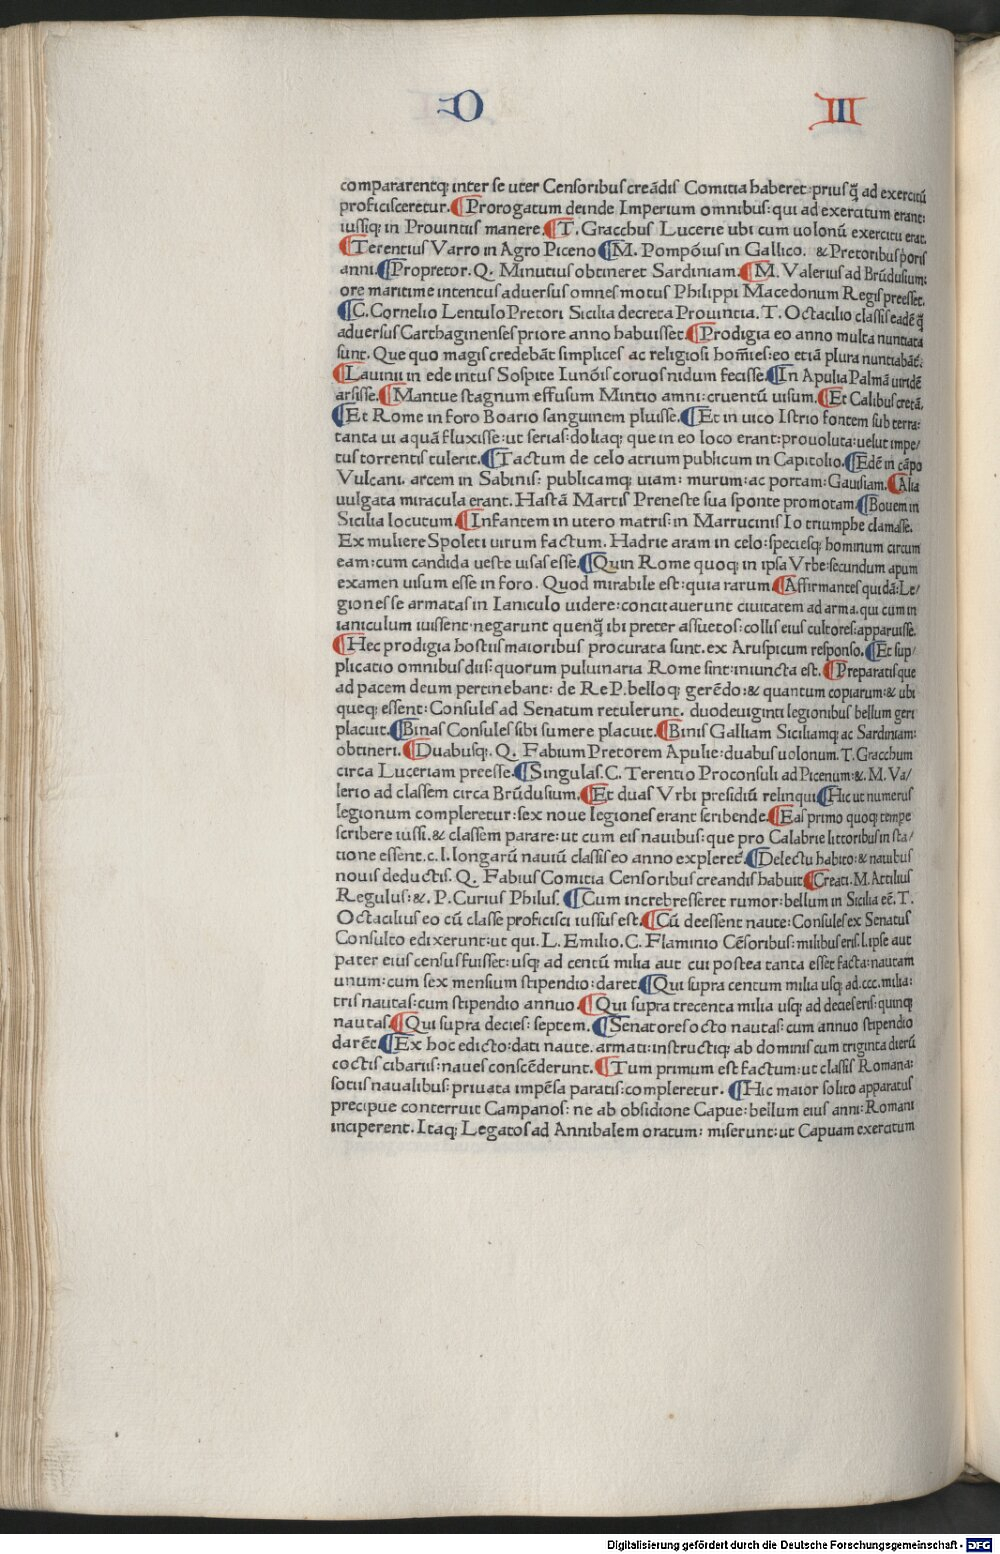 D III
compararentq; inter se uter Censoribus creādis Comitia haberet: prius q̄ ad exercitū
proficisceretur. ¶Prorogatum deinde Imperium omnibus: qui ad exercitum erant:
iussiq; in Prouintiis manere. ¶T. Gracchus Lucerie ubi cum uolonū exercitu erat.
¶Terentius Varro in Agro Piceno ¶M. Pompōius in Gallico. & Pretoribus prioris
anni. ¶Propretor. Q. Minutius obtineret Sardiniam: ¶M. Valerius ad Brūdusium:
ore maritime intentus aduersus omnes motus Philippi Macedonum Regis preesset.
¶C. Cornelio Lentulo Pretori Sicilia decreta Prouintia. T. Octacilio classis eadē q̄
aduersus Carthaginenses priore anno habuisset. ¶Prodigia eo anno multa nuntiata
sunt. Que quo magis credebāt simplices ac religiosi hoīes: eo etiā plura nuntiabāt:
¶Lauinii in ede intus Sospite Iunōis coruos nidum fecisse. ¶In Apulia Palmā uiridē
arsisse. ¶Mantue stagnum effusum Mintio amni: cruentū uisum. ¶Et Calibus cretā.
¶Et Rome in foro Boario sanguinem pluisse. ¶Et in uico Istrio fontem sub terra:
tanta ui aquā fluxisse: ut serias: doliaq; que in eo loco erant: prouoluta: uelut impe/
tus torrentis tulerit. ¶Tactum de celo atrium publicum in Capitolio. ¶Edē in cāpo
Vulcani. arcem in Sabinis: publicamq; uiam: murum: ac portam: Gauisiam. ¶Alia
uulgata miracula erant. Hastā Martis Preneste sua sponte promotam ¶Bouem in
Sicilia locutum ¶Infantem in utero matris: in Marrucinis Io triumphe clamasse.
Ex muliere Spoleti uirum factum. Hadrie aram in celo: speciesq; hominum circum
eam: cum candida ueste uisas esse. ¶Quin Rome quoq; in ipsa Vrbe: secundum apum
examen uisum esse in foro. Quod mirabile est: quia rarum. ¶Affirmantes quidā: Le/
giones se armatas in Ianiculo uidere: concitauerunt ciuitatem ad arma. qui cum in
ianiculum iuissent: negarunt quenq̄ ibi preter assuetos: collis eius cultores: apparuisse.
¶Hec prodigia hostiis maioribus procurata sunt. ex Aruspicum responso. ¶Et sup/
plicatio omnibus diis: quorum puluinaria Rome sint: iniuncta est. ¶Preparatis que
ad pacem deum pertinebant: de Re P. bello q; gerēdo: & quantum copiarum: & ubi
queq; essent: Consules ad Senatum retulerunt. duodeuiginti legionibus bellum geri
placuit. ¶Binas Consules sibi sumere placuit. ¶Binis Galliam Siciliamq; ac Sardiniam:
obtineri. ¶Duabusq; Q. Fabium Pretorem Apulie: duabus uolonum. T. Gracchum
circa Luceriam preesse. ¶Singulas. C. Terentio Proconsuli ad Picenum: &. M. Va/
lerio ad classem circa Brūdusium. ¶Et duas Vrbi presidiū relinqui ¶Hic ut numerus
legionum compleretur: sex noue legiones erant scribende. ¶Eas primo quoq; tempe
scribere iussi. & classem parare: ut cum eis nauibus: que pro Calabrie littoribus in sta/
tione essent. c. l. longarū nauiū classis eo anno expleret. ¶Delectu habito: & nauibus
nouis deductis. Q. Fabius Comitia Censoribus creandis habuit ¶Creati. M. Attilius
Regulus: &. P. Curius Philus. ¶Cum increbresseret rumor: bellum in Sicilia eē. T.
Octacilius eo cū classe proficisci iussus est. ¶Cū deessent naute: Consules ex Senatus
Consulto edixerunt: ut qui. L. Emilio. C. Flaminio Cēsoribus: milibus eris l. ipse aut
pater eius census fuisset: usq; ad centū milia aut cui postea tanta esset facta: nautam
unum: cum sex mensium stipendio: daret ¶Qui supra centum milia usq; ad. ccc. milia:
tris nautas: cum stipendio annuo. ¶Qui supra trecenta milia usq; ad decies eris: quinq;
nautas. ¶Qui supra decies: septem. ¶Senatores octo nautas: cum annuo stipendio
darēt ¶Ex hoc edicto: dati naute. armati: instructiq; ab dominis cum triginta dierū
coctis cibariis: naues conscēderunt. ¶Tum primum est factum: ut classis Romana:
sotiis naualibus: priuata impēsa paratis: compleretur. ¶Hic maior solito apparatus
precipue conterruit Campanos: ne ab obsidione Capue: bellum eius anni: Romani
inciperent. Itaq; Legatos ad Annibalem oratum: miserunt: ut Capuam exercitum
Digitalisierung gefördert durch die Deutsche Forschungsgemeinschaft - DFG